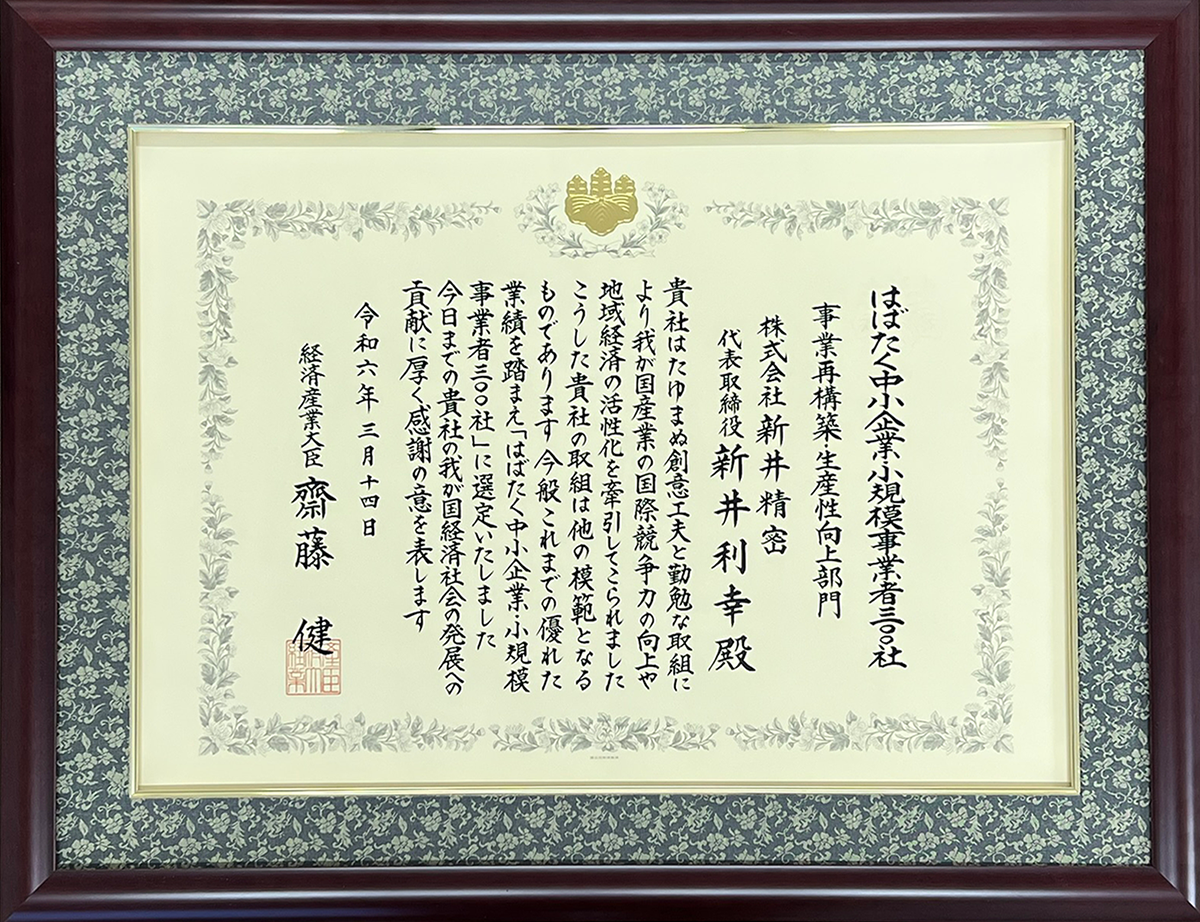 はばたく中小企業・小規模事業者三〇〇社
事業再構築・生産性向上部門
株式会社 新井精密
代表取締役 新井利幸殿
貴社はたゆまぬ創意工夫と勤勉な取組に
より我が国産業の国際競争力の向上や
地域経済の活性化を牽引してこられました
こうした貴社の取組は他の模範となる
ものであります今般これまでの優れた
業績を踏まえ「はばたく中小企業・小規模
事業者三〇〇社」に選定いたしました
今日までの貴社の我が国経済社会の発展への
貢献に厚く感謝の意を表します
令和六年三月十四日
経済産業大臣 齋藤 健